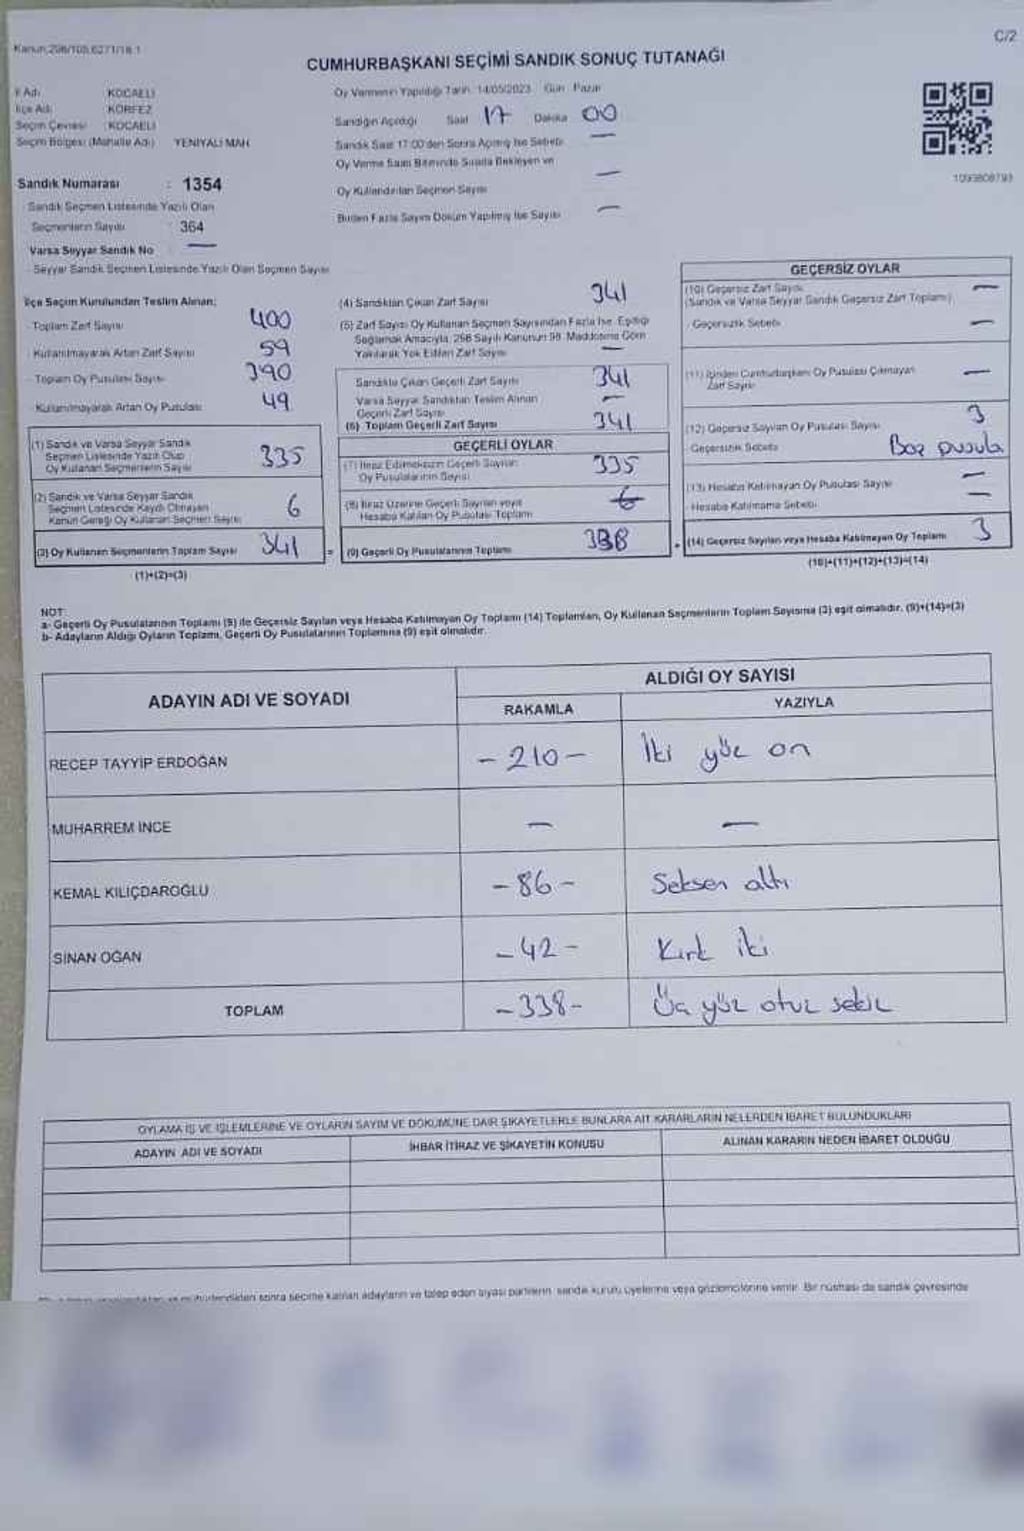 Kanun:298/105,6271/18.1
C/2
CUMHURBAŞKANI SEÇİMİ SANDIK SONUÇ TUTANAĞI
İl Adı : KOCAELİ
İlçe Adı : KÖRFEZ
Seçim Çevresi : KOCAELİ
Seçim Bölgesi (Mahalle Adı) YENİYALI MAH.
Sandık Numarası : 1354
Sandık Seçmen Listesinde Yazılı Olan
Seçmenlerin Sayısı : 364
Varsa Seyyar Sandık No —
Seyyar Sandık Seçmen Listesinde Yazılı Olan Seçmen Sayısı
Oy Vermenin Yapıldığı Tarih: 14/05/2023 Gün: Pazar
Sandığın Açıldığı Saat 17 Dakika 00
Sandık Saat 17:00'den Sonra Açılmış İse Sebebi —
Oy Verme Saati Bitiminde Sırada Bekleyen ve
Oy Kullandırılan Seçmen Sayısı —
Birden Fazla Sayım Döküm Yapılmış İse Sayısı —
1093808793
İlçe Seçim Kurulundan Teslim Alınan;
Toplam Zarf Sayısı 400
Kullanılmayarak Artan Zarf Sayısı 59
Toplam Oy Pusulası Sayısı 390
Kullanılmayarak Artan Oy Pusulası 49
(1) Sandık ve Varsa Seyyar Sandık
Seçmen Listesinde Yazılı Olup
Oy Kullanan Seçmenlerin Sayısı 335
(2) Sandık ve Varsa Seyyar Sandık
Seçmen Listesinde Kaydı Olmayan
Kanun Gereği Oy Kullanan Seçmen Sayısı 6
(3) Oy Kullanan Seçmenlerin Toplam Sayısı 341 =
(1)+(2)=(3)
(4) Sandıktan Çıkan Zarf Sayısı 341
(5) Zarf Sayısı Oy Kullanan Seçmen Sayısından Fazla İse, Eşitliği
Sağlamak Amacıyla, 298 Sayılı Kanunun 98. Maddesine Göre
Yakılarak Yok Edilen Zarf Sayısı —
Sandıkta Çıkan Geçerli Zarf Sayısı 341
Varsa Seyyar Sandıktan Teslim Alınan
Geçerli Zarf Sayısı —
(6) Toplam Geçerli Zarf Sayısı 341
GEÇERLİ OYLAR
(7) İtiraz Edilmeksizin Geçerli Sayılan
Oy Pusulalarının Sayısı 335
(8) İtiraz Üzerine Geçerli Sayılan veya
Hesaba Katılan Oy Pusulası Toplamı 6
(9) Geçerli Oy Pusulalarının Toplamı 338 +
GEÇERSİZ OYLAR
(10) Geçersiz Zarf Sayısı —
(Sandık ve Varsa Seyyar Sandık Geçersiz Zarf Toplamı)
Geçersizlik Sebebi —
(11) İçinden Cumhurbaşkanı Oy Pusulası Çıkmayan
Zarf Sayısı —
(12) Geçersiz Sayılan Oy Pusulası Sayısı 3
Geçersizlik Sebebi Boş pusula
(13) Hesaba Katılmayan Oy Pusulası Sayısı —
Hesaba Katılmama Sebebi —
(14) Geçersiz Sayılan veya Hesaba Katılmayan Oy Toplamı 3
(10)+(11)+(12)+(13)=(14)
NOT:
a- Geçerli Oy Pusulalarının Toplamı (9) ile Geçersiz Sayılan veya Hesaba Katılmayan Oy Toplamı (14) Toplamları, Oy Kullanan Seçmenlerin Toplam Sayısına (3) eşit olmalıdır. (9)+(14)=(3)
b- Adayların Aldığı Oyların Toplamı, Geçerli Oy Pusulalarının Toplamına (9) eşit olmalıdır.
ADAYIN ADI VE SOYADI ALDIĞI OY SAYISI
RAKAMLA YAZIYLA
RECEP TAYYİP ERDOĞAN -210- İki yüz on
MUHARREM İNCE — —
KEMAL KILIÇDAROĞLU -86- Seksen altı
SİNAN OĞAN -42- Kırk iki
TOPLAM -338- Üç yüz otuz sekiz
OYLAMA İŞ VE İŞLEMLERİNE VE OYLARIN SAYIM VE DÖKÜMÜNE DAİR ŞİKAYETLERLE BUNLARA AİT KARARLARIN NELERDEN İBARET BULUNDUKLARI
ADAYIN ADI VE SOYADI İHBAR İTİRAZ VE ŞİKAYETİN KONUSU ALINAN KARARIN NEDEN İBARET OLDUĞU
sonra seçime katılan adayların ve talep eden siyasi partilerin sandık kurulu üyelerine veya gözlemcilerine verilir. Bir nüshası da sandık çevresinde